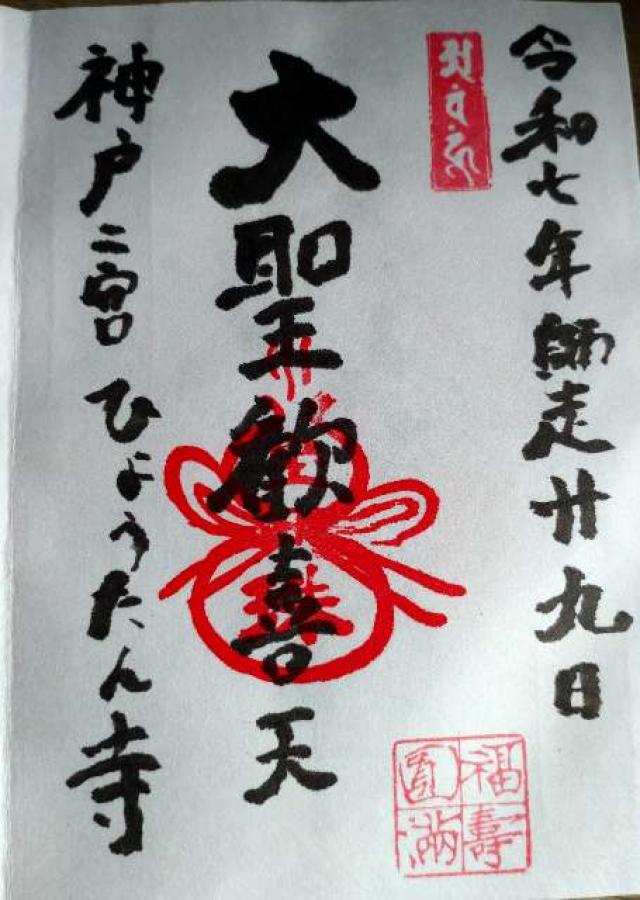 令和七年師走廿九日
大聖歓喜天
神戸二宮 ひょうたん寺
福壽
圓満